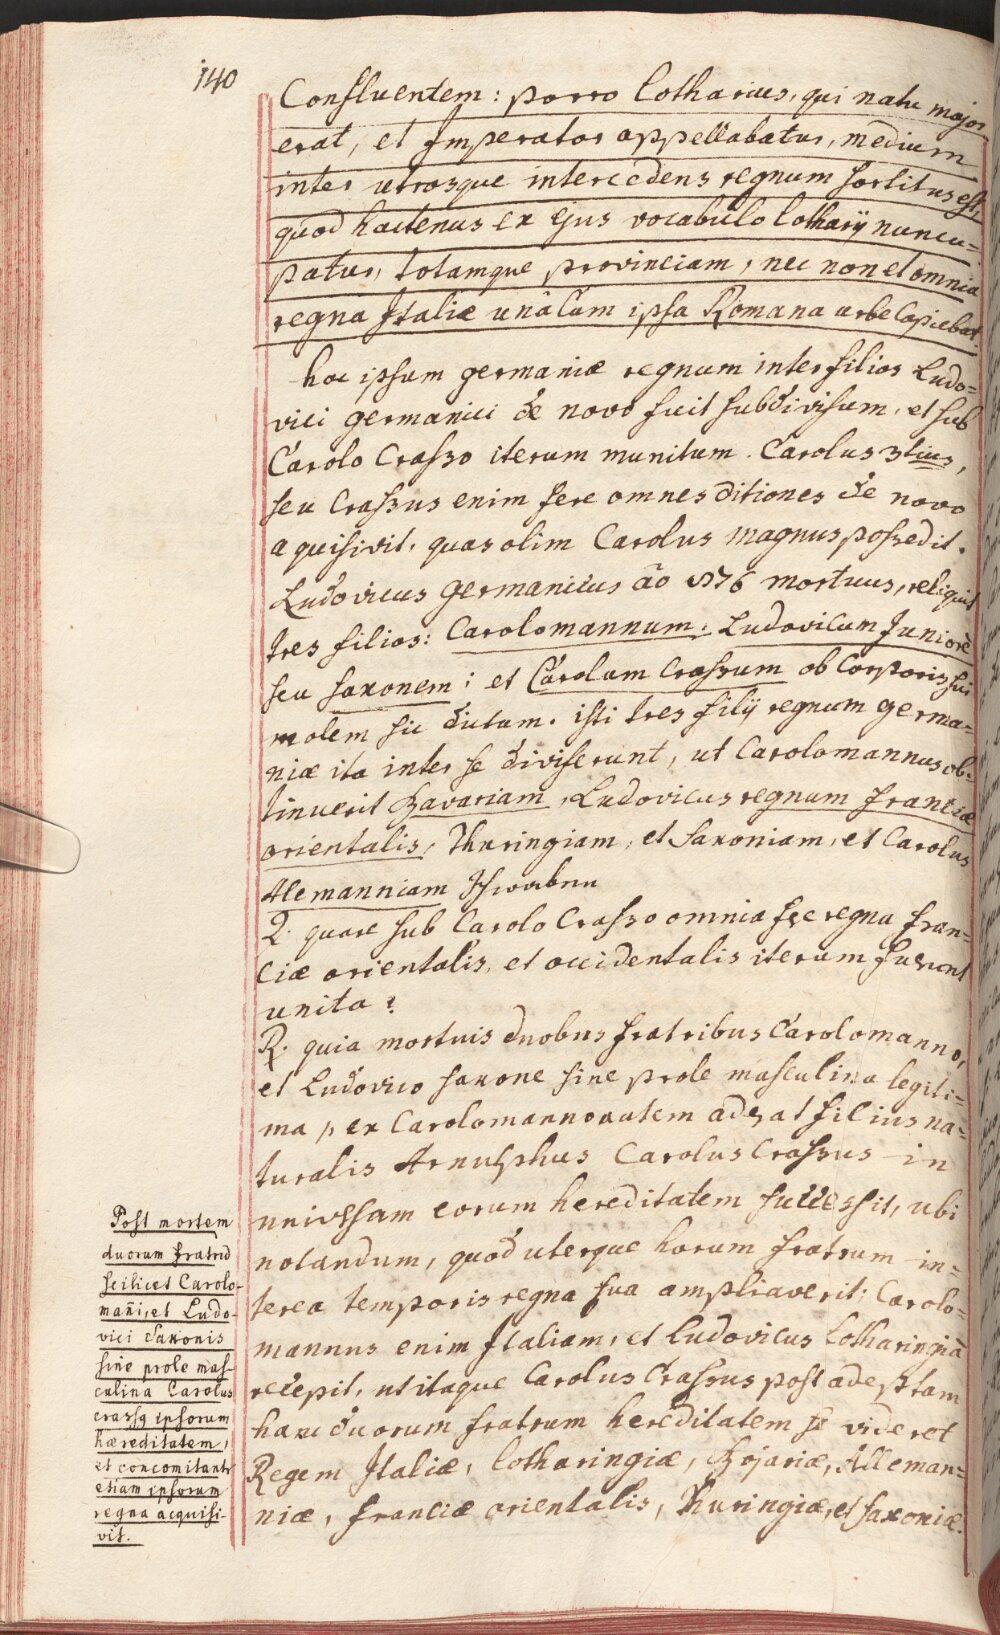 140
Confluentem: porro Lotharius, qui natu major
erat, et Imperator appellabatur, medium
inter utrosque intercedens regnum sortitus est,
quod hactenus ex ejus vocabulo Lotharij nuncu-
patur, totamque provinciam, nec non et omnia
regna Italiæ unà Cum ipsa Romana urbe Capiebat
hoc ipsum germaniæ regnum inter filios Ludo=
vici germanici de novo fuit subdivisum, et sub
Carolo Crasso iterum munitum. Carolus 3tius,
seu Crassus enim fere omnes ditiones de novo
aquisivit, quas olim Carolus magnus possedit.
Ludovicus Germanicus aõ 876 mortuus, reliquit
tres filios: Carolomannum: Ludovicum Juniorẽ
seu saxonem; et Carolum Crassum ob Corporis sui
molem sic dictum. isti tres filij regnum germa=
niæ ita inter se diviserunt, ut Carolomannus ob-
tinuerit Bavariam, Ludovicus regnum franciæ
orientalis, Thuringiam, et Saxoniam, et Carolus
Alemanniam Schwaben
Q. quare sub Carolo Crasso omnia fere regna fran=
ciæ orientalis, et occidentalis iterum fuerunt
unita?
R. quia mortuis duobus fratribus Carolomanno,
et Ludovico saxone sine prole masculina legiti=
ma, ex Carolomanno autem aderat filius na=
turalis Arnulphus Carolus Crassus in
universam eorum hereditatem successit, ubi
notandum, quod uterque horum fratrum in=
terea temporis regna sua ampliaverit; Carolo=
mannus enim Italiam, et Ludovicus Lotharingiã
recepit, ut itaque Carolus Crassus post adeptam
hanc duorum fratrum hereditatem se videret
Regem Italiæ, Lotharingiæ, Bojariæ, Alleman=
niæ, franciæ orientalis, Thuringiæ, et saxoniæ.
Post mortem
duorum fratrũ
scilicet Carolo-
mañi, et Ludo-
vici Saxonis
sine prole mas-
culina Carolus
crassq ipsorum
hæreditatem,
et concomitantr
etiam ipsorum
regna acquisi-
vit.